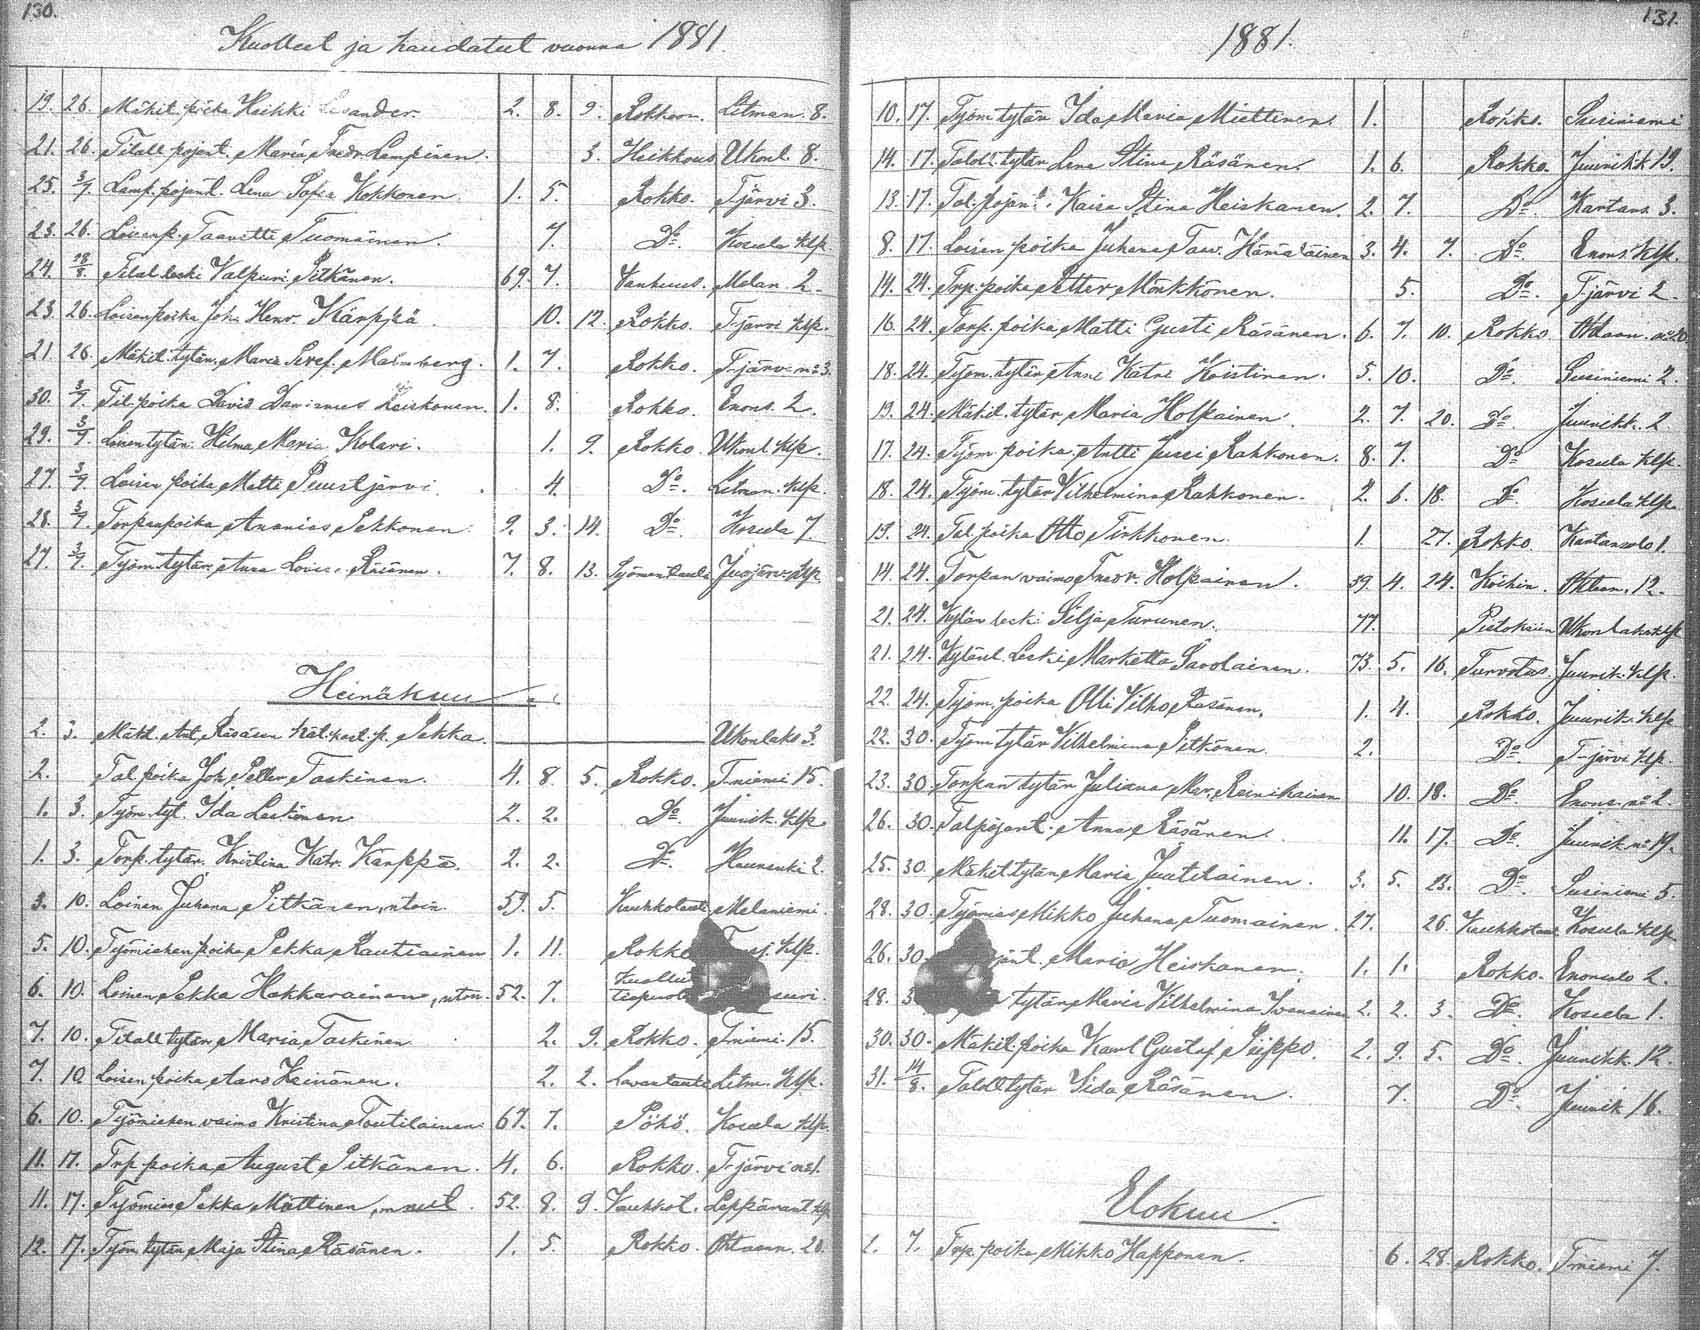 130.
Kuolleet ja haudatut vuonna 1881.
19. 26. Mäkit. poika Heikki 2. 8. 9. Rokkoon. Litman. 8.
21. 26. Titall. pojant. Maria Fredr. Lempinen. 3. Heikkous Ukonl. 8.
25. 3/7. Lamp. pojant. Lena Sofia Kokkonen. 1. 5. Rokko. T-järvi 3.
23. 26. Loisenp. Taavetti Tuomainen. 7. Do. Kosula klp.
24. 28/8. Tilal. leski Valpuri Pitkänen. 69. 7. Vanhuus. Melan. 2.
23. 26. Loisen poika Joh. Henr. Kärppä. 10. 12. Rokko. T-järvi klp.
21. 26. Mäkit. tytär. Maria Malmberg. 1. 7. Rokko. T-järvi no 3.
30. 3/7. Til. poika David Leiskonen. 1. 8. Rokko. Enons. 2.
29. 3/7. Loisen tytär. Helma Maria Kolari. 1. 9. Rokko. Ukonl. klp.
27. 3/7. Loisen poika Matti Puustjärvi. 4. Do. Litman. klp.
28. 3/7. Torpan poika Ananias Pekkonen. 9. 3. 14. Do. Kosula 7
27. 3/7. Työm. tytär. Anna Lovisa Räsänen. 7. 8. 13. klp
Heinäkuu
2. 3. Mäkit. Ant. Räsäsen Pekka. Ukonlaks 3.
2. Tal. poika Joh. Petter Taskinen. 4. 8. 5. Rokko. T-niemi 15.
1. 3. Työm. tyt. Ida 2. 2. Do. Juurik. klp.
1. 3. Torp. tytär. Kristina Katr. Karppa. 2. 2. Do. 2.
3. 10. Loinen Juhana Pitkänen, 59. 5. Keuhkotauti Melaniemi.
5. 10. Työmiehen poika Pekka Rautiainen 1. 11. Rokko klp.
6. 10. Loinen Pekka Hakkarainen, 52. 7. Kuollut
7. 10. Titall. tytär. Maria Taskinen 2. 9. Rokko. T-niemi. 15.
7. 10 Loisen poika Aaro Heinänen. 2. 2. Litm. klp.
6. 10. Työmiehen vaimo Kristina Toutilainen. 67. 7. Pöhö. Kosula klp.
11. 17. Trp. poika August Pitkänen. 4. 6. Rokko. T-järvi no 1.
11. 17. Työmies Pekka Mättinen, 52. 8. 9. Keuhkot. Leppärant. klp
12. 17. Työm. tytär Maja Stina Räsänen. 1. 5. Rokko. Ohtaans. 20.
131.
1881.
10. 17. Työm. tytär Ida Maria Miettinen. 1. Rokko. Susiniemi
14. 17. Taloll. tytär Lena Stina Räsänen. 1. 6. Rokko. Juurikk. 19.
13. 17. Tal. pojant. Kaisa Stina Heiskanen. 2. 7. Do. Kartans. 3.
8. 17. Loisen poika Juhana Taav. Hämäläinen 3. 4. 7. Do. Enons. klp.
14. 24. Trp. poika Petter Mönkkönen. 5. Do. T-järvi 2.
16. 24. Torp. poika Matti Gusti Räsänen. 6. 7. 10. Rokko
18. 24. Työm. tytär Anni Katri Koistinen. 5. 10. Do. Susiniemi 2.
19. 24. Mäkit. tytär Maria Holpainen. 2. 7. 20. Do. Juurikk. 2.
17. 24. Työm. poika Antti Jussi Rahkonen. 8. 7. Do. Kosula klp.
18. 24. Työm. tytär Vilhelmina Rahkonen. 2. 6. 18. Do. Kosula klp.
19. 24. Tal. poika Otto Tirkkonen. 1. 27. Rokko. Kartansalo 1.
14. 24. Torpan vaimo Fredr. Holpainen. 39. 4. 24. Ohtaan. 12.
21. 24. Kylän leski Silja Turunen. 77. Ukonlaks klp
21. 24. Kylänl. Leski Marketta Savolainen. 73. 5. 16. Turvotus. Juurik. klp.
22. 24. Työm. poika Olli Vilho Räsänen. 1. 4. Rokko. Juurik. klp
22. 30. Työm. tytär Vilhelmina Pitkönen. 2. Do. T-järvi klp.
23. 30. Torpan tytär Juliana Mar. Reinikainen 10. 18. Do. Enons. no 2.
26. 30. Talpojant. Anna Räsänen. 11. 17. Do. Juurik. no 19.
25. 30. Mäkit. tytär Maria Juutilainen. 3. 5. 23. Do. Susiniemi 5.
28. 30. Työmies Mikko Juhana Tuomainen. 27. 26. Keuhkotaut. Kosula klp
26. 30. Maria Heiskanen. 1. 1. Rokko. Enonsalo 2.
28. tytär Maria Vilhelmina 2. 2. 3. Do. Kosula 1.
30. 30. Mäkit. poika Karl Gustaf Piippo. 2. 9. 5. Do. Juurikk. 12.
31. 14/8. Taloll. tytär Iida Räsänen. 7. Do. Juurik 16.
Elokuu.
2. 7. Trp. poika Mikko Happonen. 6. 28. Rokko. T-niemi 7.